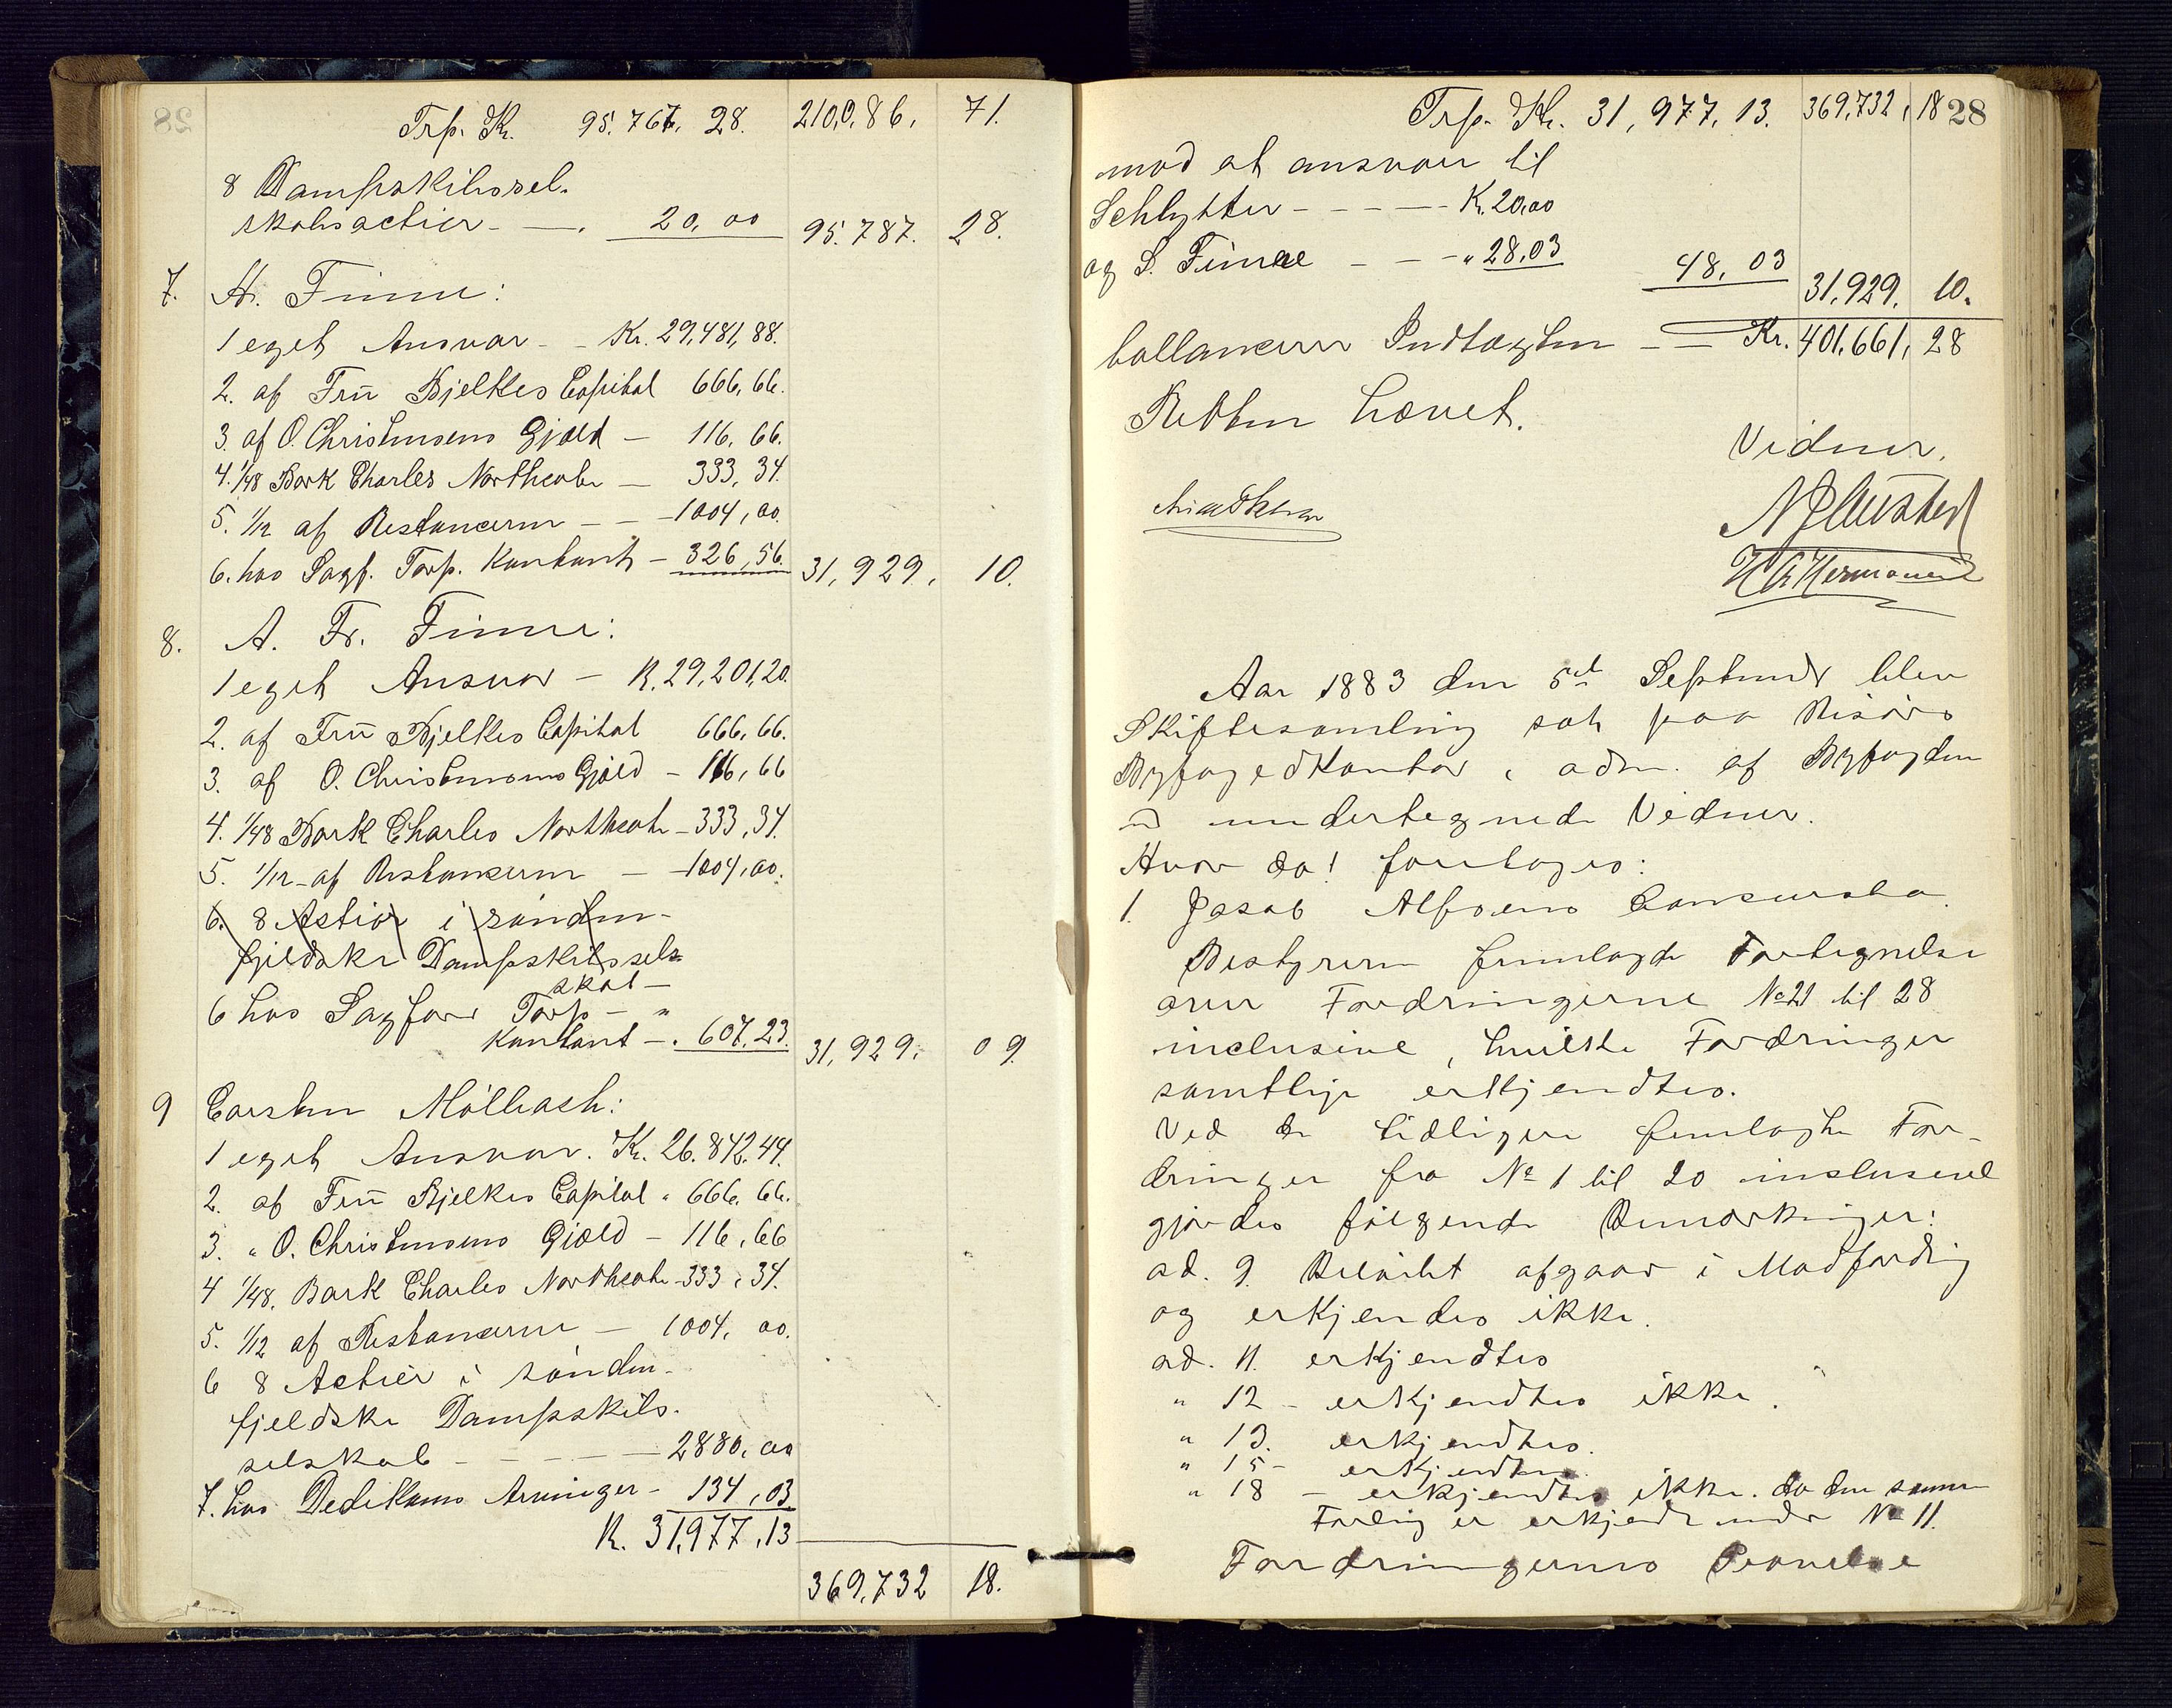 Trp. Kr. 95.767, 28. 210,0,86, 71.
8 Dampskibssel-
skabsactier - — . 20, 00 95.787. 28.
7. H. Finne:
1 eget Ansvar - - Kr. 29,481,88.
2. af Fru Bjelkes Capital 666,66.
3. af O. Christensens Gjæld — 116, 66.
4. 1/48 Bark Charles Northcote — 333, 34.
5. 1/12 af Restancerne - - - 1004, 00.
6. hos Sagf. Torp. Kontant — 326, 56. 31,929, 10.
8. A. Fr. Finne:
1 eget Ansvar — K. 29,201,20.
2. af Fru Bjelkes Capital 666,66.
3. af O. Christensens Gjæld — 116,66
4. 1/48 Bark Charles Northcote - 333,34.
5. 1/12 - af Restancerne — - 1004,00.
6. 8 Actier i sønden-
fjeldske Dampskibssels-
skab —
6 hos Sagfører Torp — "
Kontant — . 607.23. 31,929. 09.
9 Carsten Mölbach:
1 eget Ansvar. Kr. 26.842.44.
2. af Fru Bjelkes Capital " 666.66.
3. " O. Christensens Gjæld — 116,66
4 1/48. Bark Charles Northcote - 333,34.
5. 1/12 af Restancerne — 1004, 00.
6 8 Actier i sönden-
fjeldske Dampskibs-
selskab - - - - — 2880,00
7. hos Dedekams Arvinger - 134,03
K. 31,977,13
369,732 18.
Trp. Kr. 31,977,13. 369,732, 18 28
mod at ansvare til
Schlytter - - - - - K. 20,00
og S. Finne - - - " 28,03 48, 03
31,929. 10.
ballancerer Indtægten - — Kr. 401,661, 28
Retten hævet.
Vidner.
Aar 1883 den 5te September blev
Skiftesamling sat paa Risörs
Byfogedkontor, adm. af Byfogden
med undertegnede Vidner.
Hvor da! foretoges:
1. Jacob Alfsens Concursbo.
Bestyreren fremlagde Fortegnelse
over Fordringerne No 21 til 28
inclusive, hvilke Fordringer
samtlige erkjendtes.
Ved de tidligere fremlagte For-
dringer fra No 1 til 20 inclusive
gjordes fölgende Bemærkninger:
ad. 9. Belöbet afgaar i Modfordring
og erkjendes ikke.
ad. 11. erkjendtes
" 12 - erkjendtes ikke.
" 13. erkjendtes.
" 15 - erkjendtes.
" 18 — erkjendtes ikke. da den samme
Fordring er erkjendt under No 11.
Fordringernes Prövelse